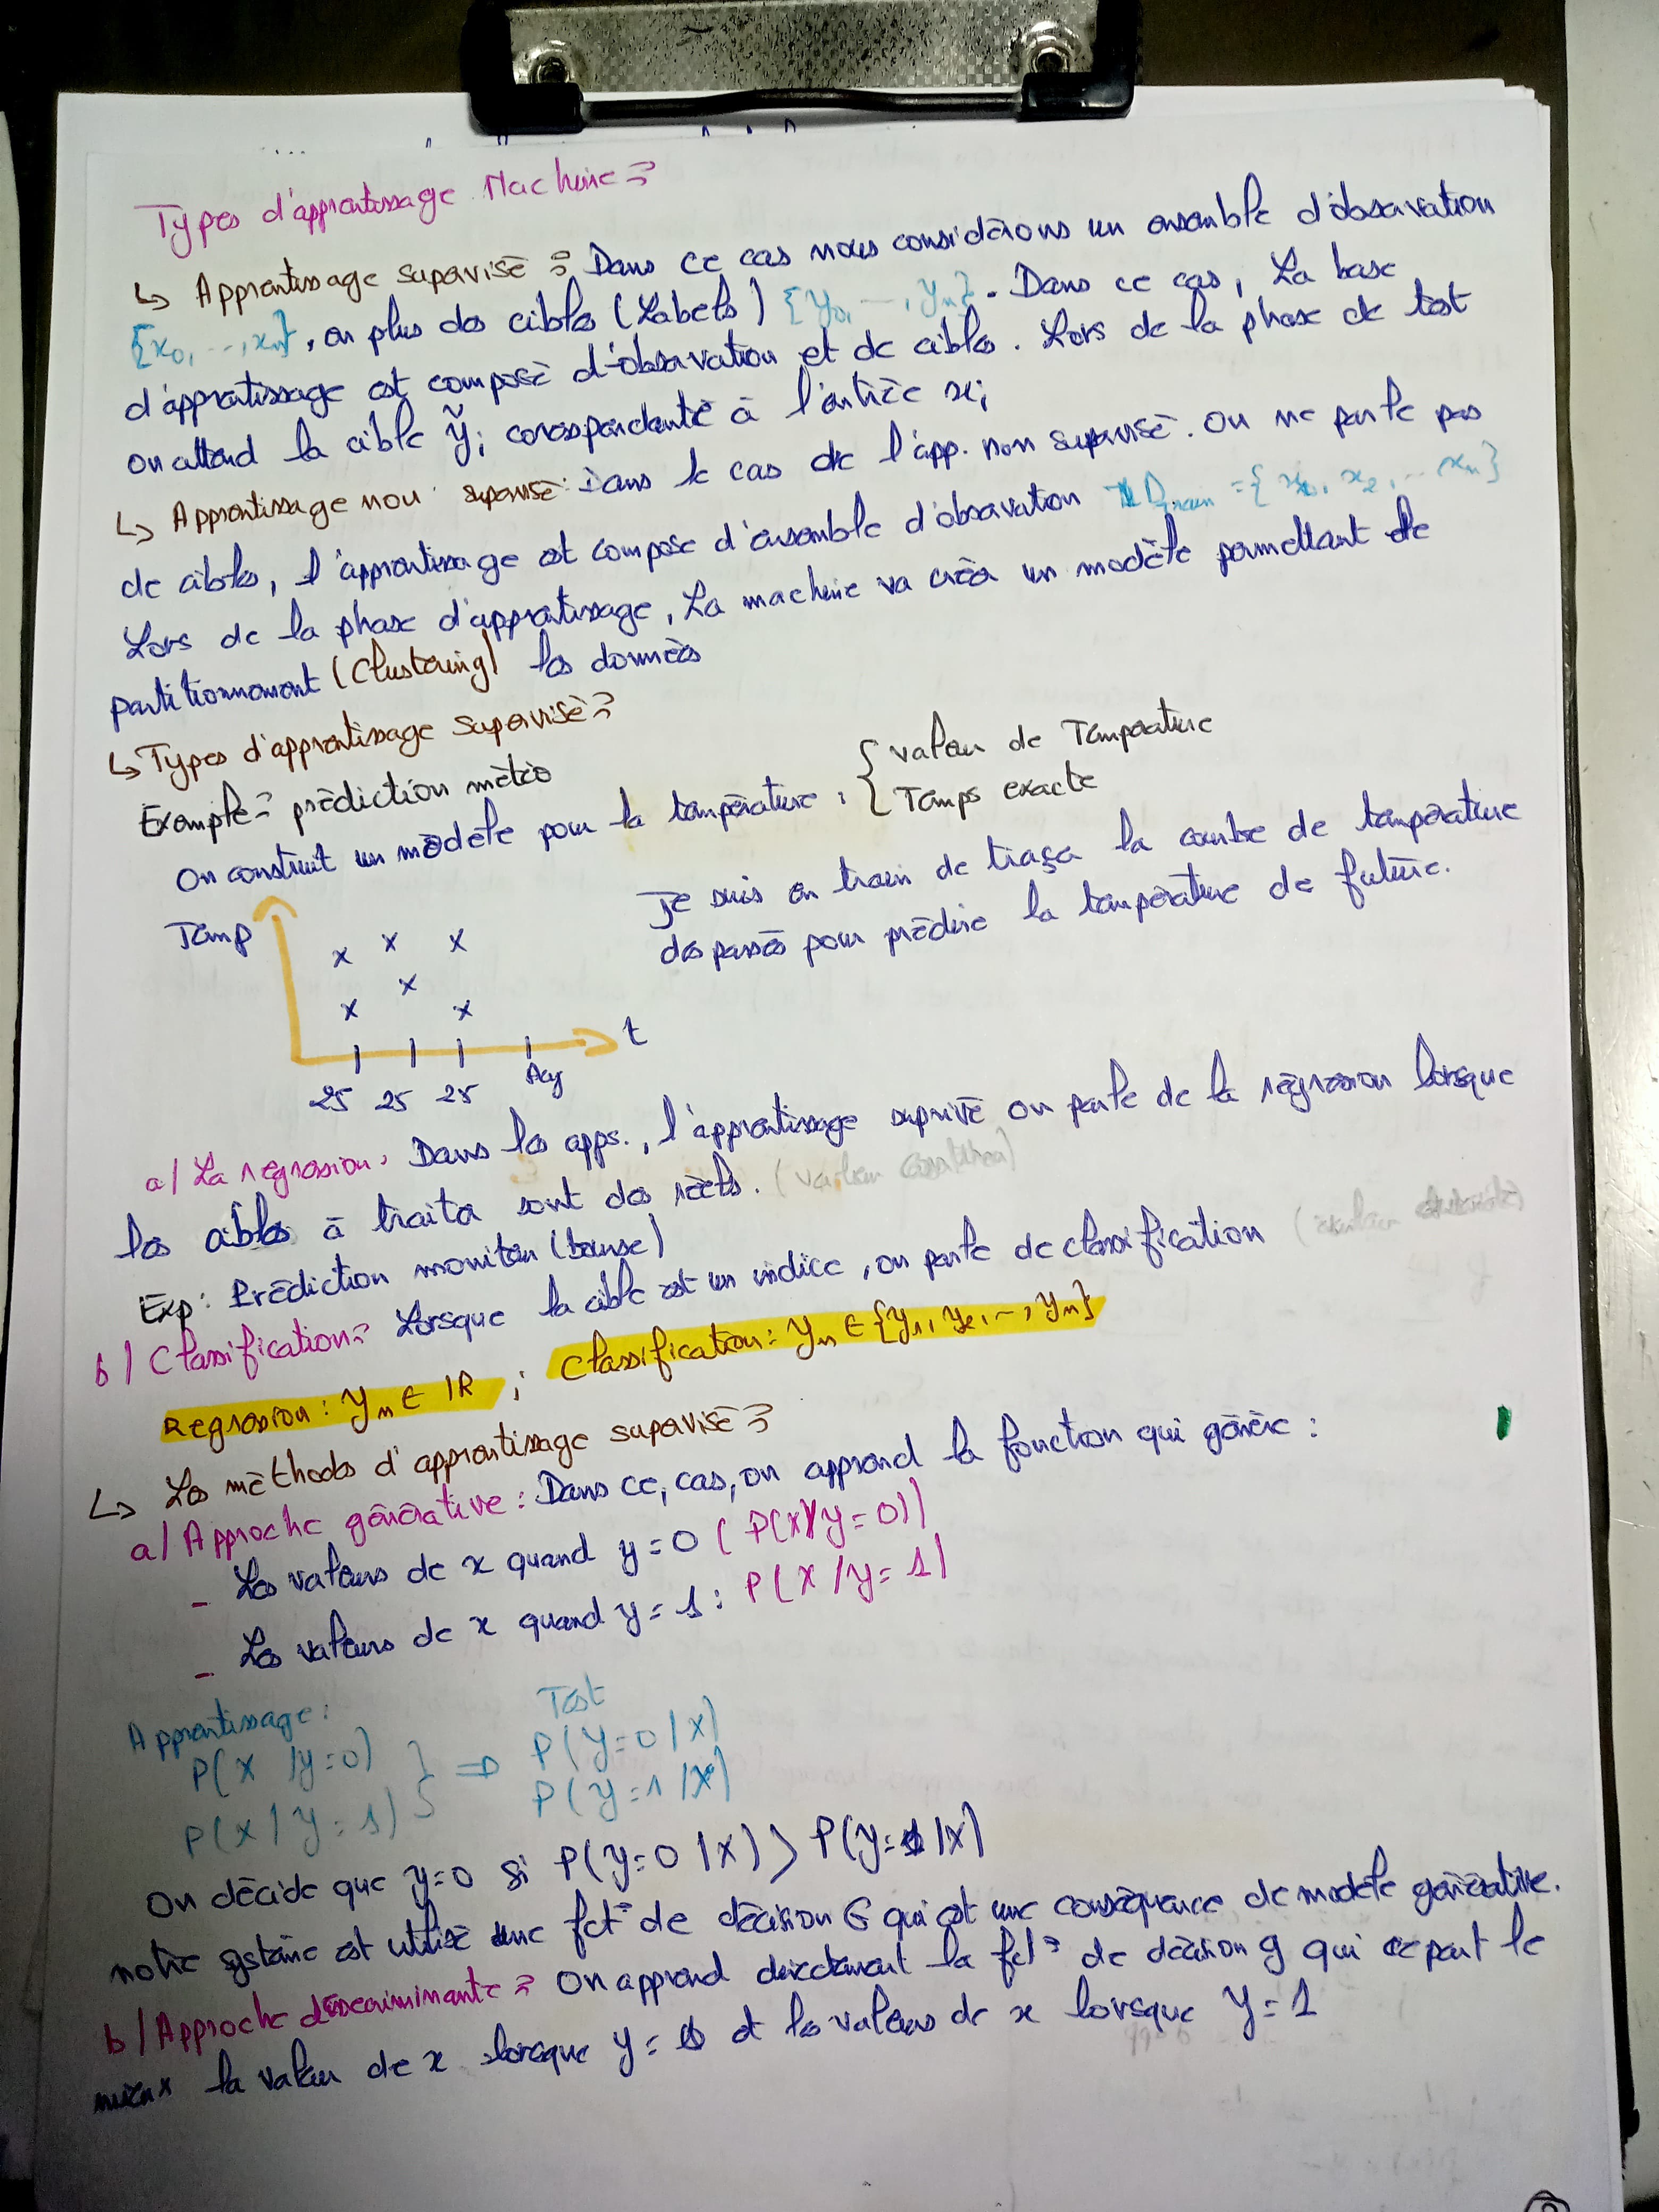 Types d'apprentissage Machine :
↳ Apprentissage supervisé : Dans ce cas nous considérons un ensemble d'observation
{x0, ..., xn}, en plus des cibles (Labels) {y0, ..., yn}. Dans ce cas, La base
d'apprentissage est composé d'observation et de cibles. Lors de la phase de test
on attend la cible ỹi correspondante à l'entrée xi
↳ Apprentissage non supervisé : Dans le cas de l'app. non supervisé. On ne parle pas
de cibles, l'apprentissage est composé d'ensemble d'observation Dtrain = {x0, x2, ... xn}
Lors de la phase d'apprentissage, La machine va créer un modèle permettant de
partitionnement (Clustering) les données
↳ Types d'apprentissage supervisé :
Exemple : prédiction météo
On construit un modèle pour la température : { valeur de Température
Temps exacte
Je suis en train de traçer la courbe de température
des passés pour prédire la température de future.
Temp
t
25 25 25 Auj
a/ La régression : Dans les apps., l'apprentissage suprivé on parle de la régression lorsque
les cibles à traiter sont des réels. (valeur
Exp : Prédiction moniton (bourse)
b/ Classification : Lorsque la cible est un indice, on parle de classification
Regression : yn ∈ IR ; Classification : yn ∈ {y1, y2, ..., yn}
↳ Les méthodes d'apprentissage supervisé :
a/ Approche générative : Dans ce, cas, on apprend la fonction qui génère :
- Les valeurs de x quand y = 0 ( P(X/y = 0))
- Les valeurs de x quand y = 1 : P(X / y = 1)
Apprentissage : Test
P(X / y = 0) } ⇒ P(y = 0 / X)
P(X / y = 1) P(y = 1 / X)
On décide que y = 0 si P(y = 0 / X) > P(y = 1 / X)
notre système est utilisé une fct° de décision G qui est une conséquence de modèle générative.
b/ Approche discriminante : On apprend directement la fct° de décision g qui sépart le
mieux la valeur de x lorsque y = 0 et les valeurs de x lorsque y = 1